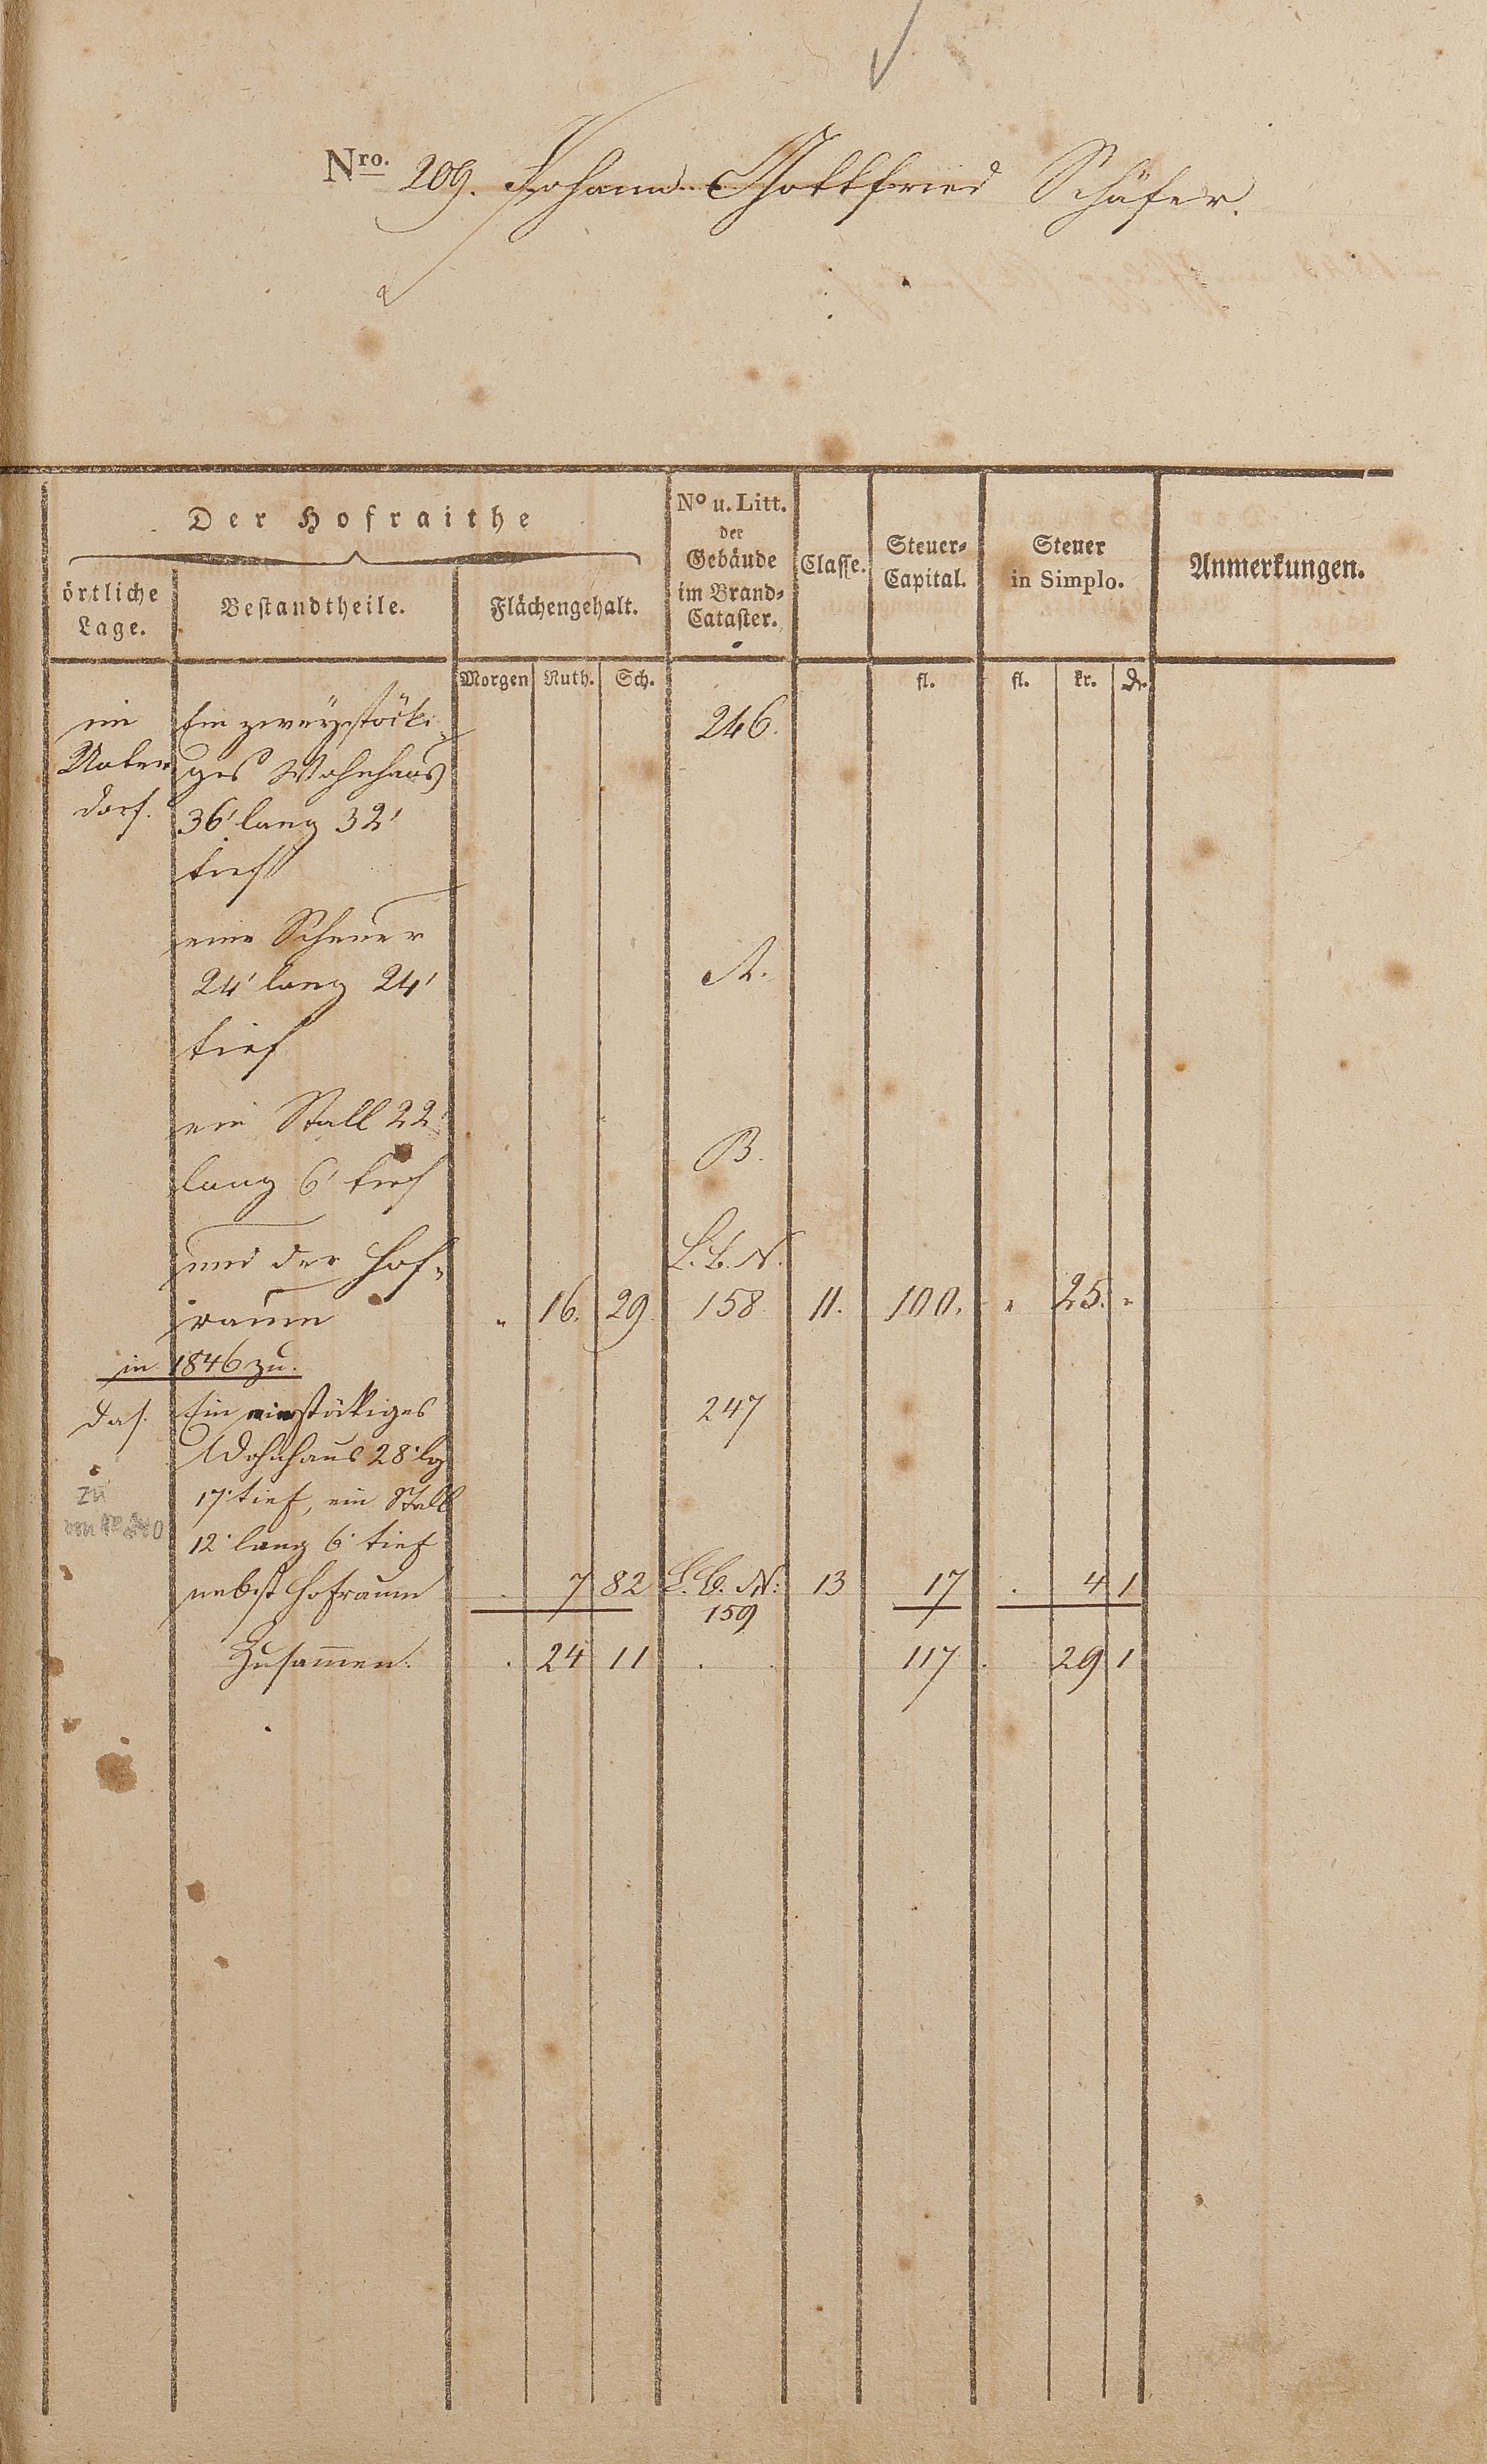 Nro. 209. Johann Gottfried Schäfer.
Der Hofraithe
örtliche Lage.
Bestandtheile.
Flächengehalt.
No u. Litt. der Gebäude im Brand-Cataster.
Classe.
Steuer-Capital.
Steuer in Simplo.
Anmerkungen.
Morgen Ruth. Sch. fl. fl. kr. d.
im Ein zweystöcki- 246.
Unter ges Wohnhaus
dorf. 36' lang 32'
tief
eine Scheuer
24' lang 24' A.
tief
ein Stall 22'
lang 6' tief B.
und der Hof- L. b. N.
raum " 16. 29. 158. 11. 100. " 25. "
in 1846 zu.
das. Ein einstökiges 247
Wohnhaus 28' lg
zu 17' tief, ein Stall
von
12' lang 6' tief
nebst Hofraum . 7 82 L. B. N: 13 17 . 4 1
159
Zusam̄en. . 24 11 . . 117 . 29 1